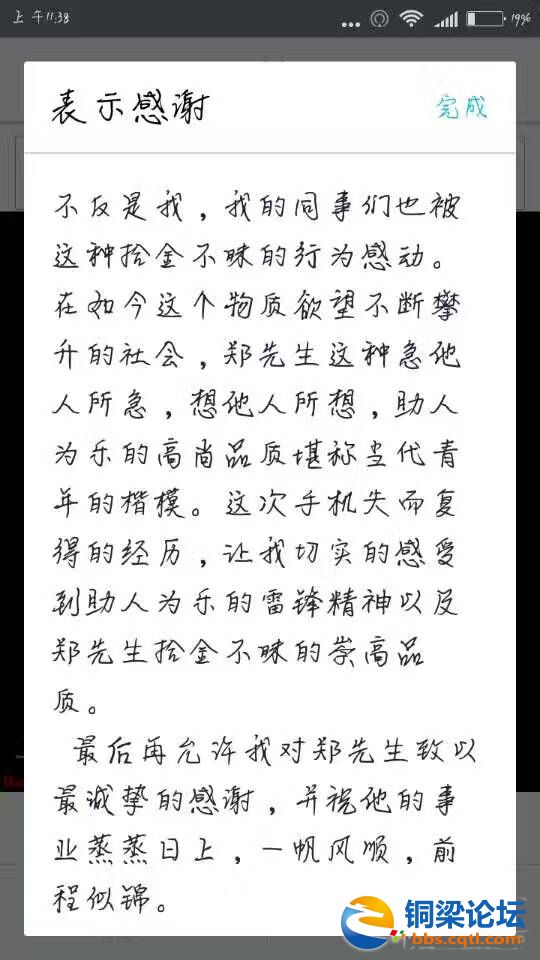 上午11:38
19%
表示感谢
完成
不仅是我，我的同事们也被
这种拾金不昧的行为感动。
在如今这个物质欲望不断攀
升的社会，郑先生这种急他
人所急，想他人所想，助人
为乐的高尚品质堪称当代青
年的楷模。这次手机失而复
得的经历，让我切实的感受
到助人为乐的雷锋精神以及
郑先生拾金不昧的崇高品
质。
最后再允许我对郑先生致以
最诚挚的感谢，并祝他的事
业蒸蒸日上，一帆风顺，前
程似锦。
铜梁论坛
bbs.cqtl.com